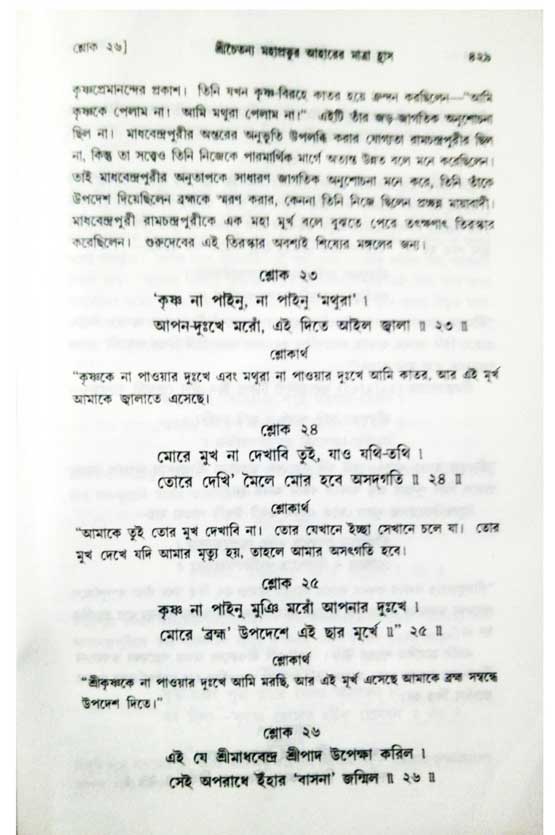 শ্লোক ২৬]
শ্রীচৈতন্য মহাপ্রভুর আহারের মাত্রা হ্রাস
৪২৯
কৃষ্ণপ্রেমানন্দের প্রকাশ। তিনি যখন কৃষ্ণ-বিরহে কাতর হয়ে ক্রন্দন করছিলেন—"আমি
কৃষ্ণকে পেলাম না! আমি মথুরা পেলাম না!" এইটি তাঁর জড়-জাগতিক অনুশোচনা
ছিল না। মাধবেন্দ্রপুরীর অন্তরের অনুভূতি উপলব্ধি করার যোগ্যতা রামচন্দ্রপুরীর ছিল
না, কিন্তু তা সত্ত্বেও তিনি নিজেকে পারমার্থিক মার্গে অত্যন্ত উন্নত বলে মনে করেছিলেন।
তাই মাধবেন্দ্রপুরীর অনুতাপকে সাধারণ জাগতিক অনুশোচনা মনে করে, তিনি তাঁকে
উপদেশ দিয়েছিলেন ব্রহ্মকে স্মরণ করার, কেননা তিনি নিজে ছিলেন প্রচ্ছন্ন মায়াবাদী।
মাধবেন্দ্রপুরী রামচন্দ্রপুরীকে এক মহা মূর্খ বলে বুঝতে পেরে তৎক্ষণাৎ তিরস্কার
করেছিলেন। গুরুদেবের এই তিরস্কার অবশ্যই শিষ্যের মঙ্গলের জন্য।
শ্লোক ২৩
'কৃষ্ণ না পাইনু, না পাইনু 'মথুরা' ।
আপন-দুঃখে মরোঁ, এই দিতে আইল জ্বালা ॥ ২৩ ॥
শ্লোকার্থ
"কৃষ্ণকে না পাওয়ার দুঃখে এবং মথুরা না পাওয়ার দুঃখে আমি কাতর, আর এই মূর্খ
আমাকে জ্বালাতে এসেছে।
শ্লোক ২৪
মোরে মুখ না দেখাবি তুই, যাও যথি-তথি ।
তোরে দেখি' মৈলে মোর হবে অসদ্‌গতি ॥ ২৪ ॥
শ্লোকার্থ
"আমাকে তুই তোর মুখ দেখাবি না। তোর যেখানে ইচ্ছা সেখানে চলে যা। তোর
মুখ দেখে যদি আমার মৃত্যু হয়, তাহলে আমার অসৎগতি হবে।
শ্লোক ২৫
কৃষ্ণ না পাইনু মুঞি মরোঁ আপনার দুঃখে ।
মোরে 'ব্রহ্ম' উপদেশে এই ছার মূর্খে ॥" ২৫ ॥
শ্লোকার্থ
"শ্রীকৃষ্ণকে না পাওয়ার দুঃখে আমি মরছি, আর এই মূর্খ এসেছে আমাকে ব্রহ্ম সম্বন্ধে
উপদেশ দিতে।"
শ্লোক ২৬
এই যে শ্রীমাধবেন্দ্র শ্রীপাদ উপেক্ষা করিল ।
সেই অপরাধে ইঁহার 'বাসনা' জন্মিল ॥ ২৬ ॥